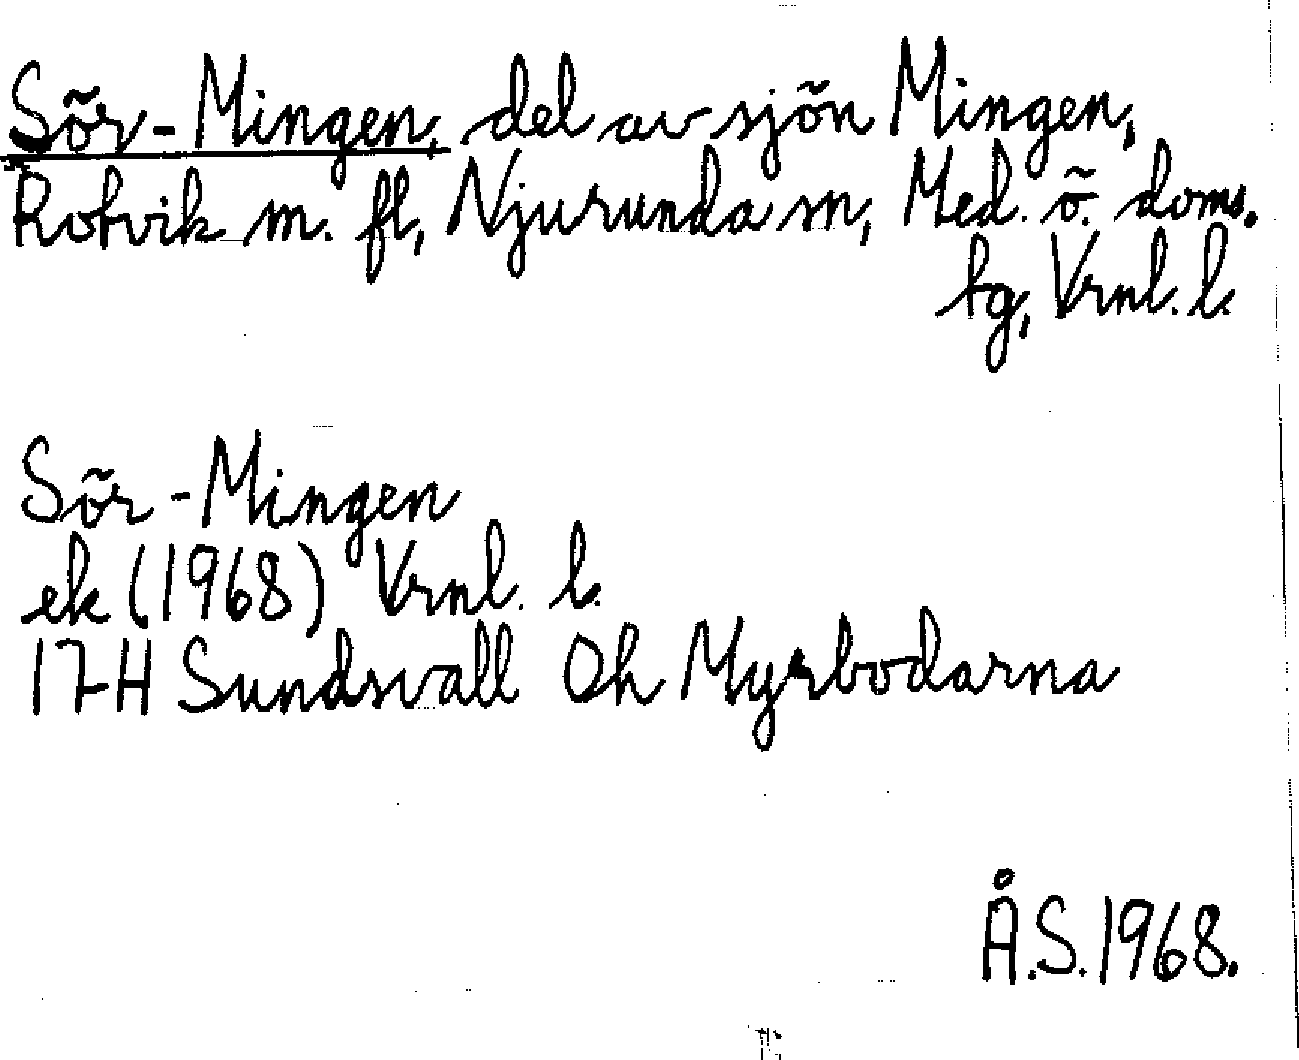 Sör-Mingen, del av sjön Mingen,
Rotvik m. fl, Njurunda sn, Med. ö. doms.
tg, Vrnl. l.
Sör-Mingen
ek (1968) Vrnl. l.
17H Sundsvall Oh Myrbodarna
Å.S. 1968.